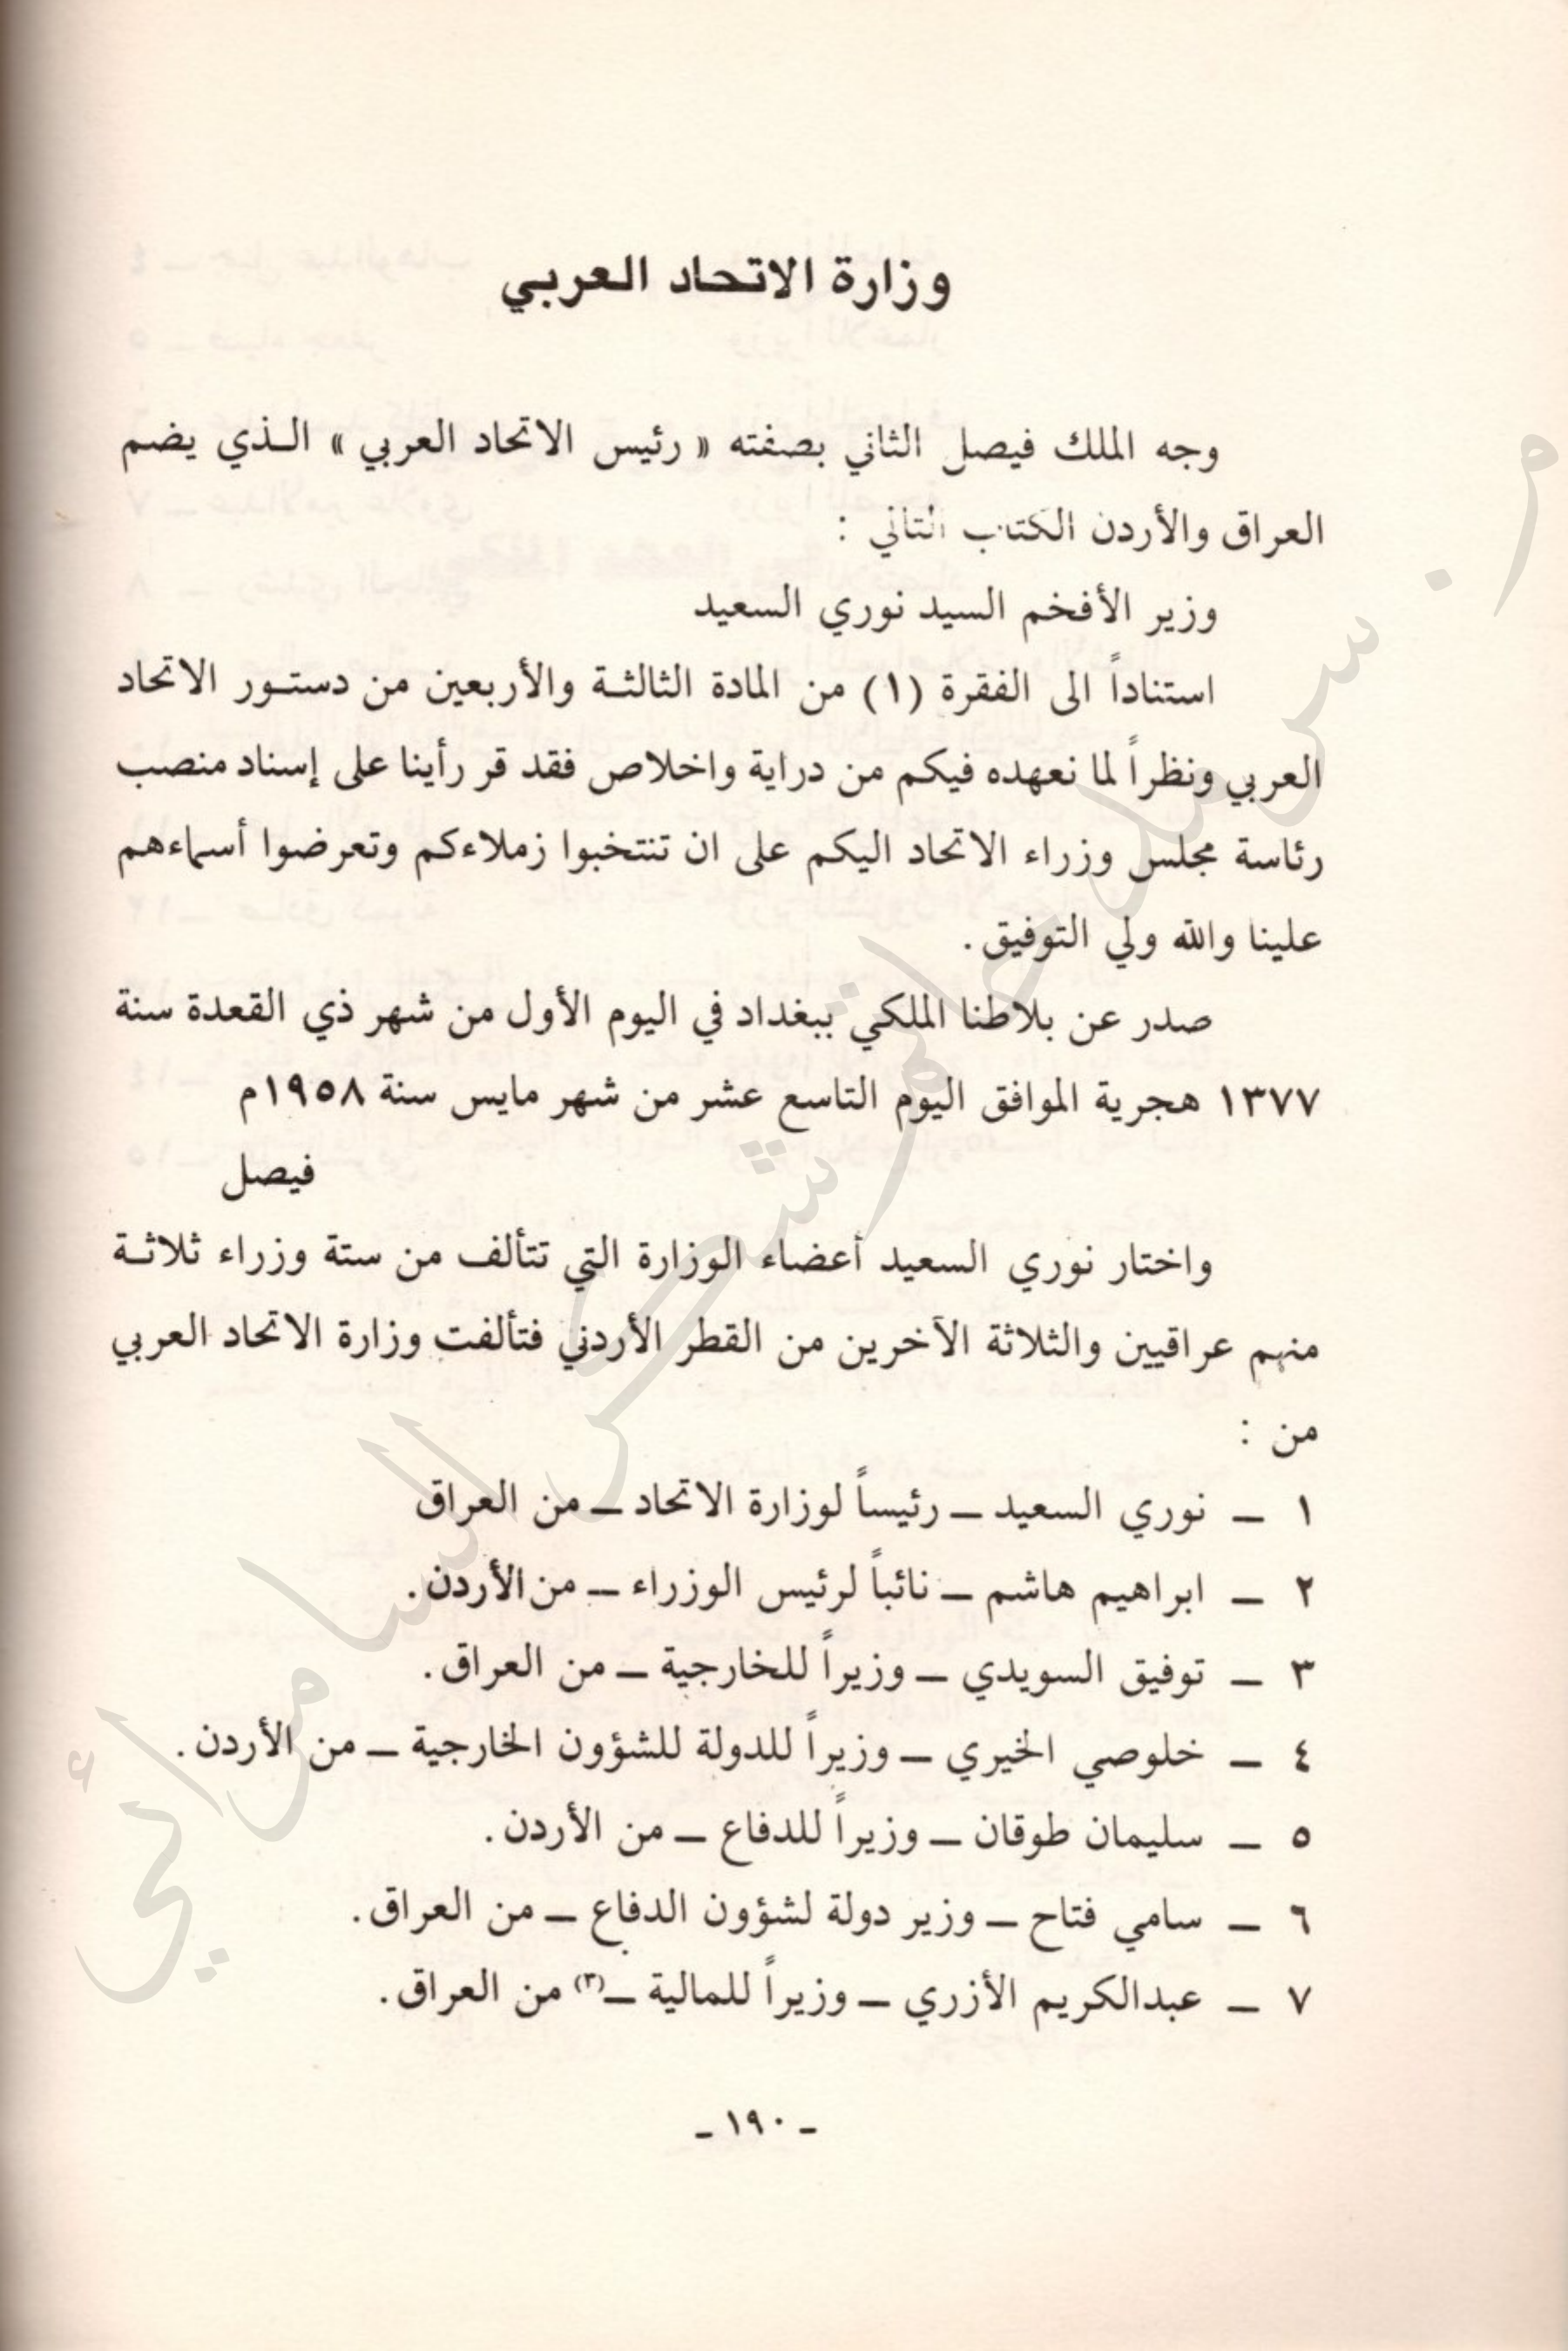 وزارة الاتحاد العربي
وجه الملك فيصل الثاني بصفته « رئيس الاتحاد العربي » الذي يضم
العراق والأردن الكتاب التالي :
وزير الأفخم السيد نوري السعيد
استناداً الى الفقرة (١) من المادة الثالثة والأربعين من دستور الاتحاد
العربي ونظراً لما نعهده فيكم من دراية واخلاص فقد قر رأينا على إسناد منصب
رئاسة مجلس وزراء الاتحاد اليكم على ان تنتخبوا زملاءكم وتعرضوا أسماءهم
علينا والله ولي التوفيق .
صدر عن بلاطنا الملكي ببغداد في اليوم الأول من شهر ذي القعدة سنة
١٣٧٧ هجرية الموافق اليوم التاسع عشر من شهر مايس سنة ١٩٥٨م
فيصل
واختار نوري السعيد أعضاء الوزارة التي تتألف من ستة وزراء ثلاثة
منهم عراقيين والثلاثة الآخرين من القطر الأردني فتألفت وزارة الاتحاد العربي
من :
١ ـ نوري السعيد ـ رئيساً لوزارة الاتحاد ـ من العراق
٢ ـ ابراهيم هاشم ـ نائباً لرئيس الوزراء ـ من الأردن .
٣ ـ توفيق السويدي ـ وزيراً للخارجية ـ من العراق .
٤ ـ خلوصي الخيري ـ وزيراً للدولة للشؤون الخارجية ـ من الأردن .
٥ ـ سليمان طوقان ـ وزيراً للدفاع ـ من الأردن .
٦ ـ سامي فتاح ـ وزير دولة لشؤون الدفاع ـ من العراق .
٧ ـ عبدالكريم الأزري ـ وزيراً للمالية ـ(٣) من العراق .
ـ ١٩٠ ـ